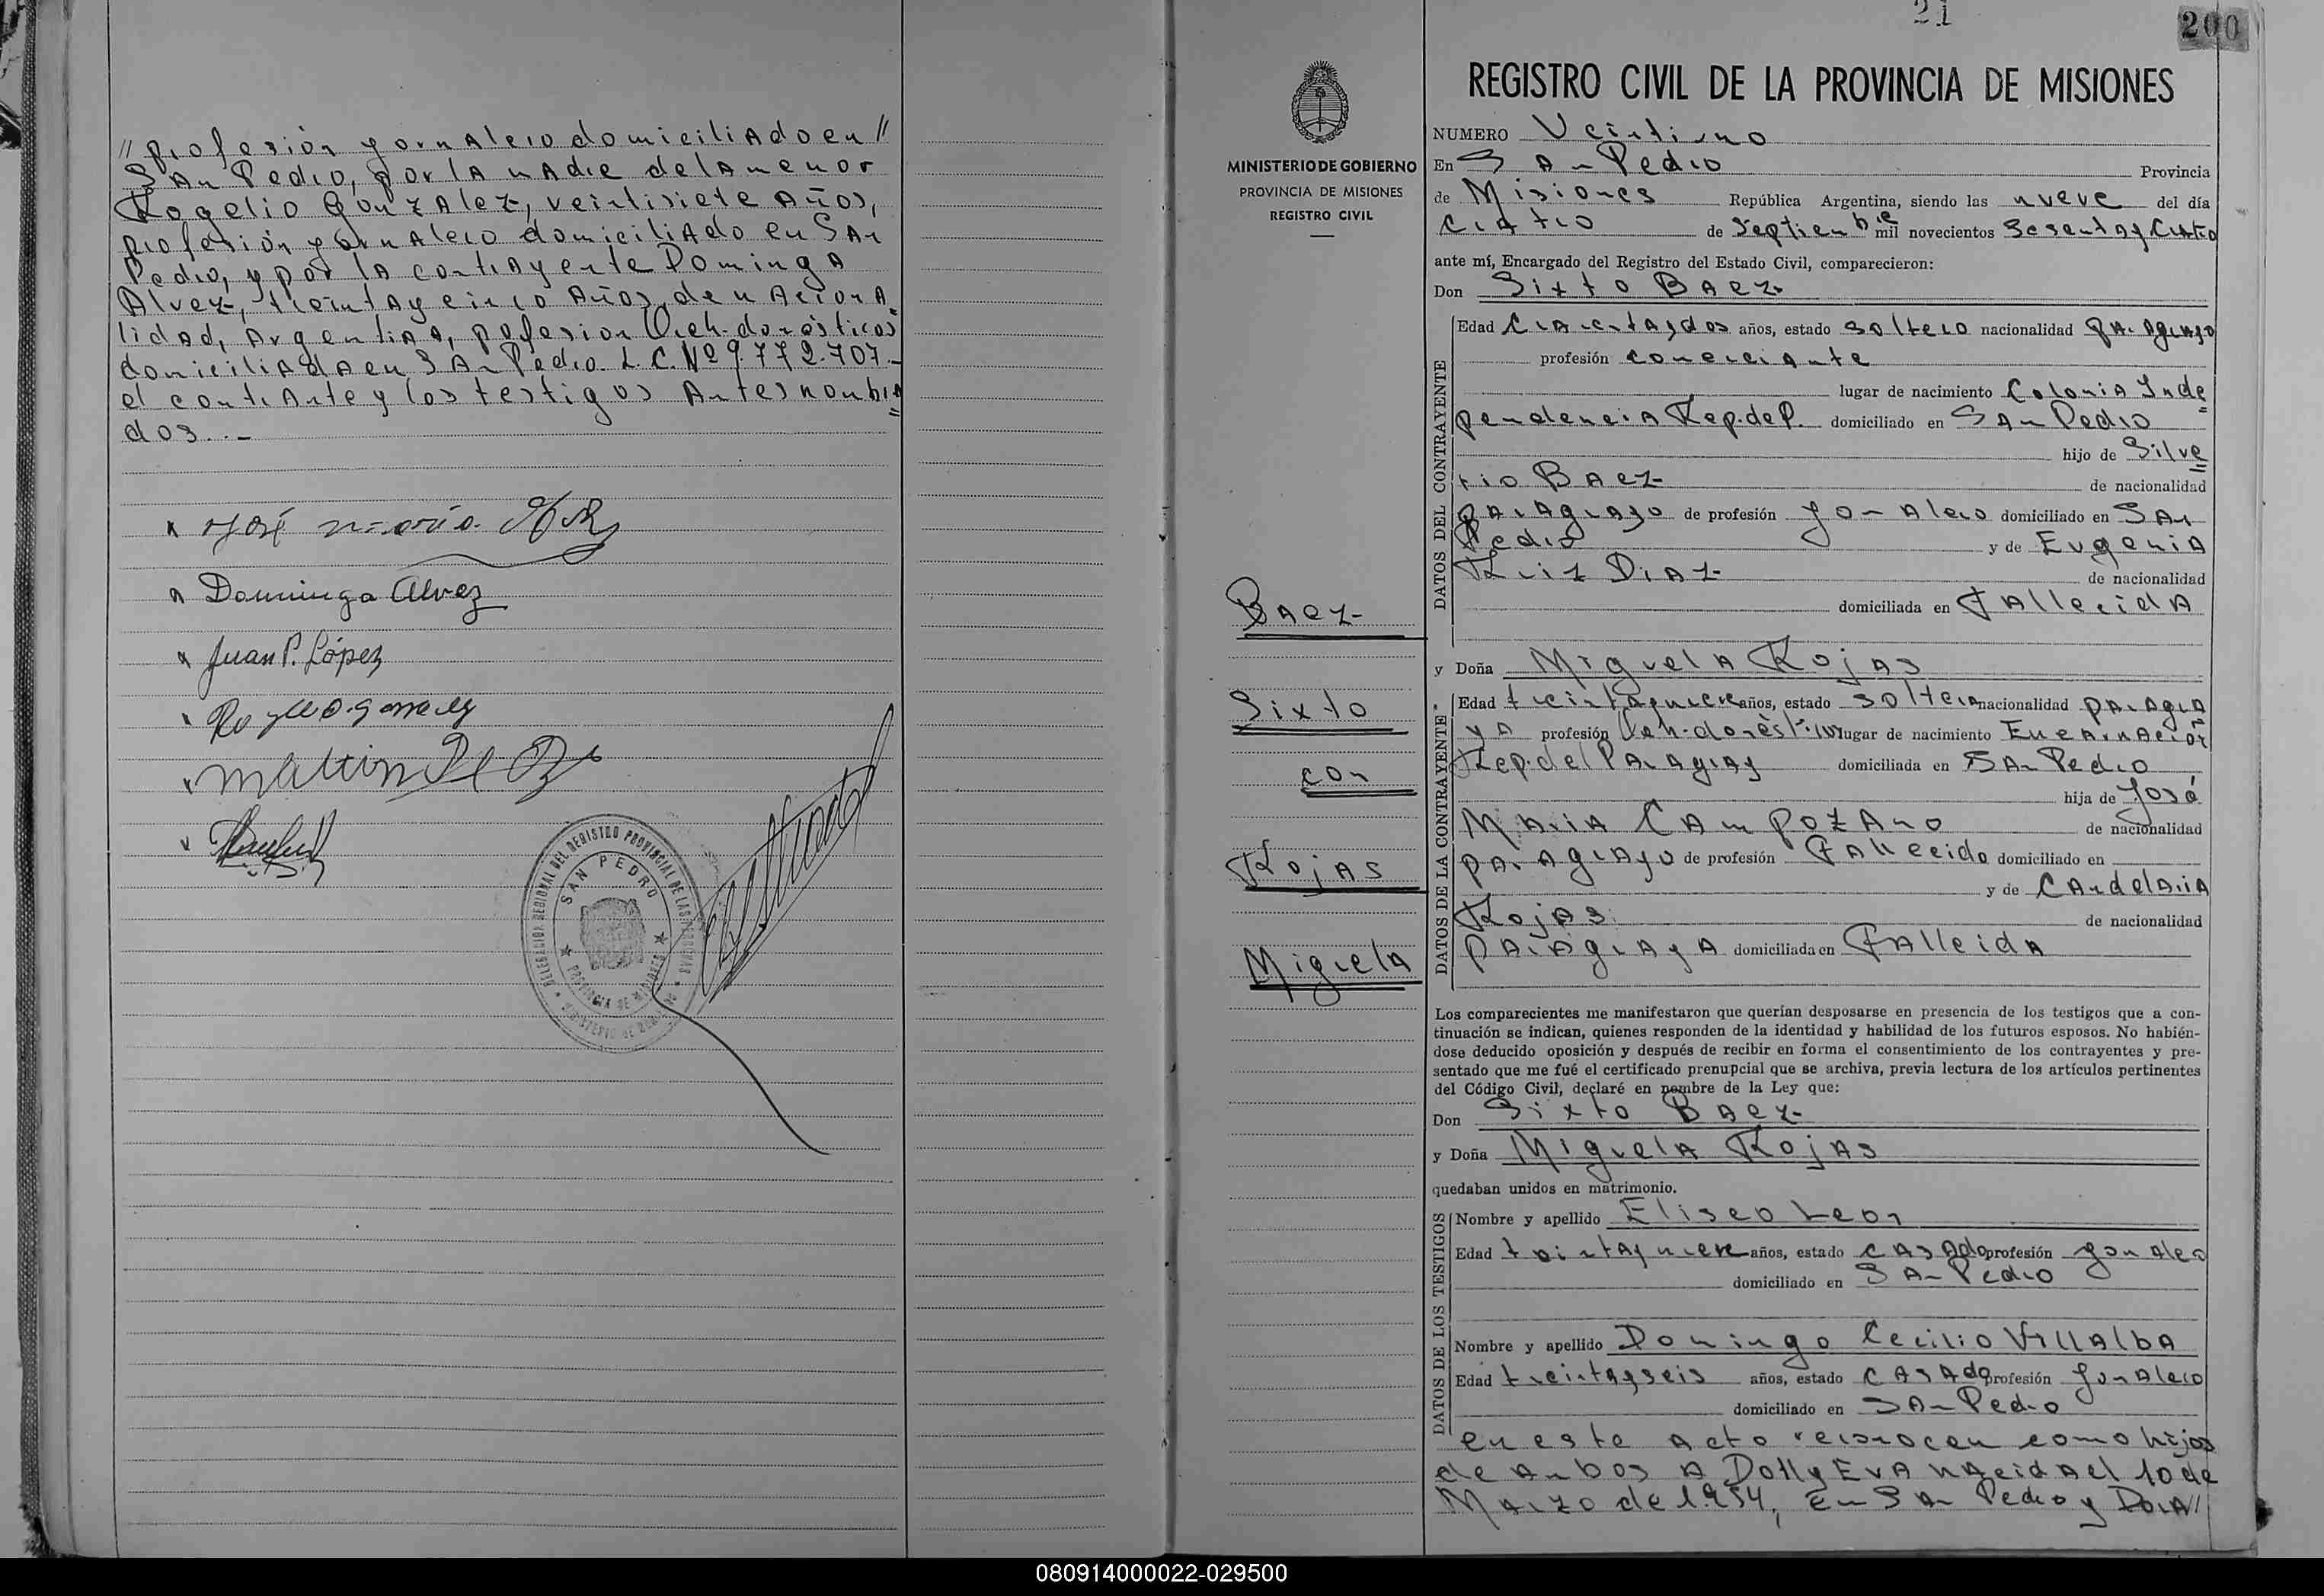 // profesión yornalero domiciliado en //
San Pedro, por la madre de la menor
Rogelio Gonzalez, veintisiete años,
profesión yornalero domiciliado en San
Pedro, y por la contrayente Dominga
Alvez, treinta y cinco años, de naciona=
lidad, Argentina, pofesion Queh. domésticos
domiciliada en San Pedro. L.C. Nº 9.772.707.-
el contrante y los testigos antes nombra=
dos..-
José
Dominga Alvez
Juan P. López
SAN PEDRO
PROVINCIA DE MISIONES
21
200
REGISTRO CIVIL DE LA PROVINCIA DE MISIONES
MINISTERIO DE GOBIERNO
PROVINCIA DE MISIONES
REGISTRO CIVIL
Baez
Sixto
con
Rojas
Miguela
NUMERO Veintiuno
En San Pedro Provincia
de Misiones República Argentina, siendo las nueve del día
cuatro de Septiembre mil novecientos Sesenta y Cuatro
ante mí, Encargado del Registro del Estado Civil, comparecieron:
Don Sixto Baez
DATOS DEL CONTRAYENTE
Edad Cuarenta y dos años, estado soltero nacionalidad paraguayo
profesión comerciante
lugar de nacimiento Colonia Inde=
pendencia Rep. del P. domiciliado en San Pedro
hijo de Silve=
rio Baez de nacionalidad
paraguayo de profesión Jornalero domiciliado en San
Pedro y de Eugenia
Ruiz Diaz de nacionalidad
domiciliada en Fallecida
y Doña Miguela Rojas
DATOS DE LA CONTRAYENTE
Edad treinta y nueve años, estado soltera nacionalidad paragua
ya profesión Queh. domésticos lugar de nacimiento Encarnación
Rep. del Paraguay domiciliada en San Pedro
hija de José
Maria Campozano de nacionalidad
paraguayo de profesión Fallecido domiciliado en
y de Candelaria
Rojas de nacionalidad
paraguaya domiciliada en Falleida
Los comparecientes me manifestaron que querían desposarse en presencia de los testigos que a con-
tinuación se indican, quienes responden de la identidad y habilidad de los futuros esposos. No habién-
dose deducido oposición y después de recibir en forma el consentimiento de los contrayentes y pre-
sentado que me fué el certificado prenupcial que se archiva, previa lectura de los artículos pertinentes
del Código Civil, declaré en nombre de la Ley que:
Don Sixto Baez
y Doña Miguela Rojas
quedaban unidos en matrimonio.
DATOS DE LOS TESTIGOS
Nombre y apellido Eliseo Leon
Edad treinta y nueve años, estado casado profesión jornalero
domiciliado en San Pedro
Nombre y apellido Domingo Cecilio Villalba
Edad treinta y seis años, estado casado profesión Jornalero
domiciliado en San Pedro
en este acto reconocen como hijos
de ambos a Dolly Eva nacida el 10 de
Marzo de 1.954, en San Pedro y Dora //
080914000022-029500